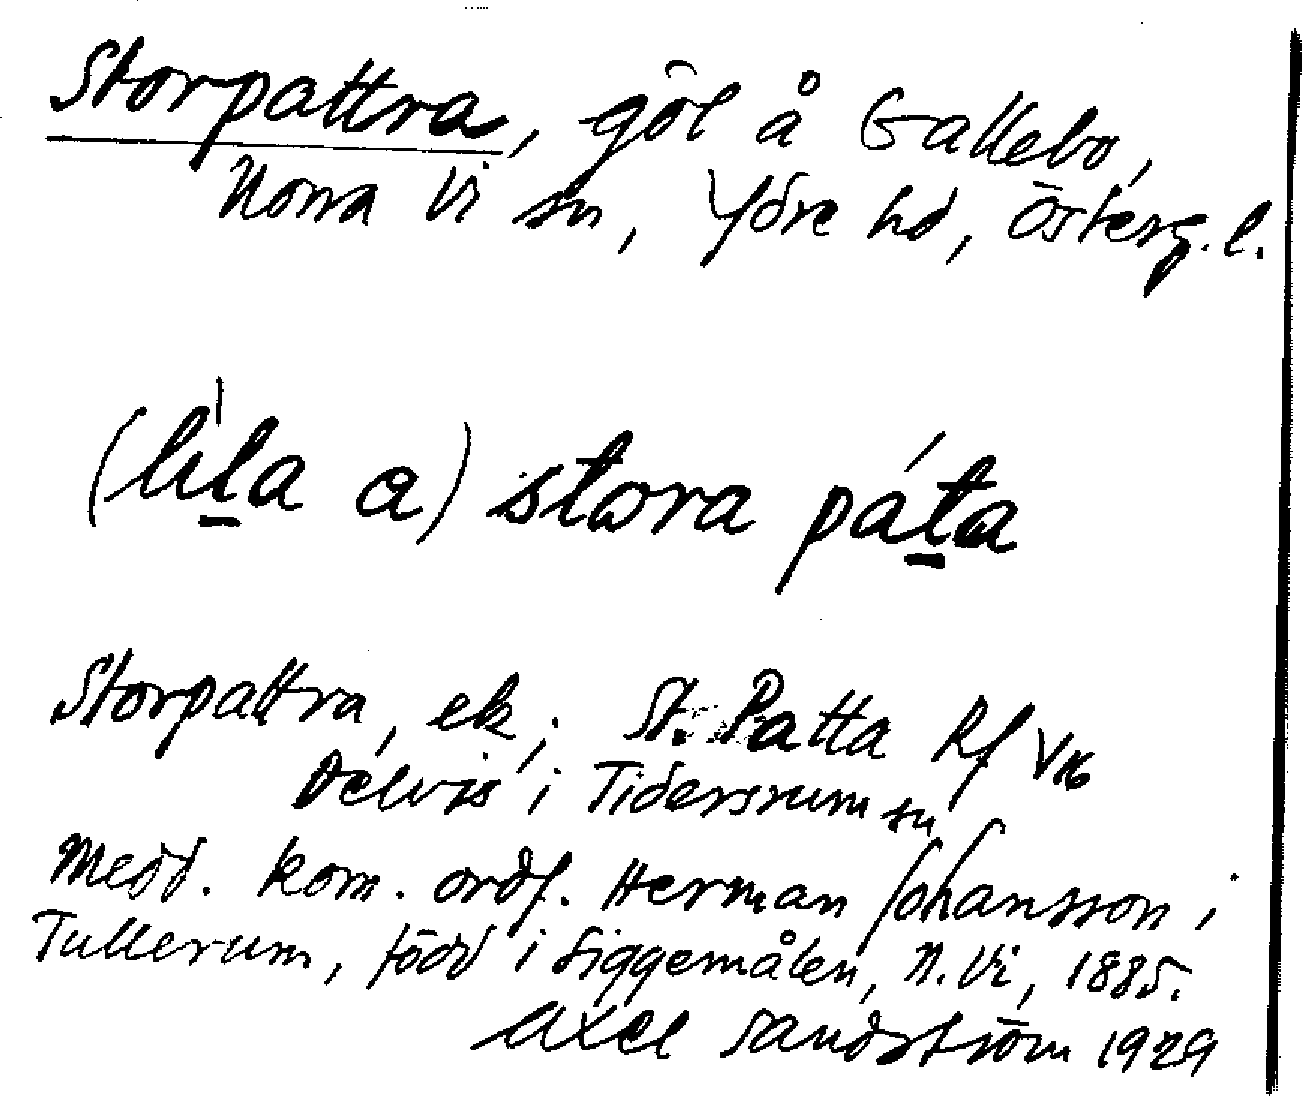 Storpattra, göl å Gallebo,
Norra Vi sn, Ydre hd, Österg. l.
(líl̲a a) stora pát̲a
Storpattra, ek; St. Patta Rf V16
Delvis i Tidersrum sn
Medd. kom. ordf. Herman Johansson i
Tullerum, född i Siggemålen, N. Vi, 1885.
Axel Sandström 1929